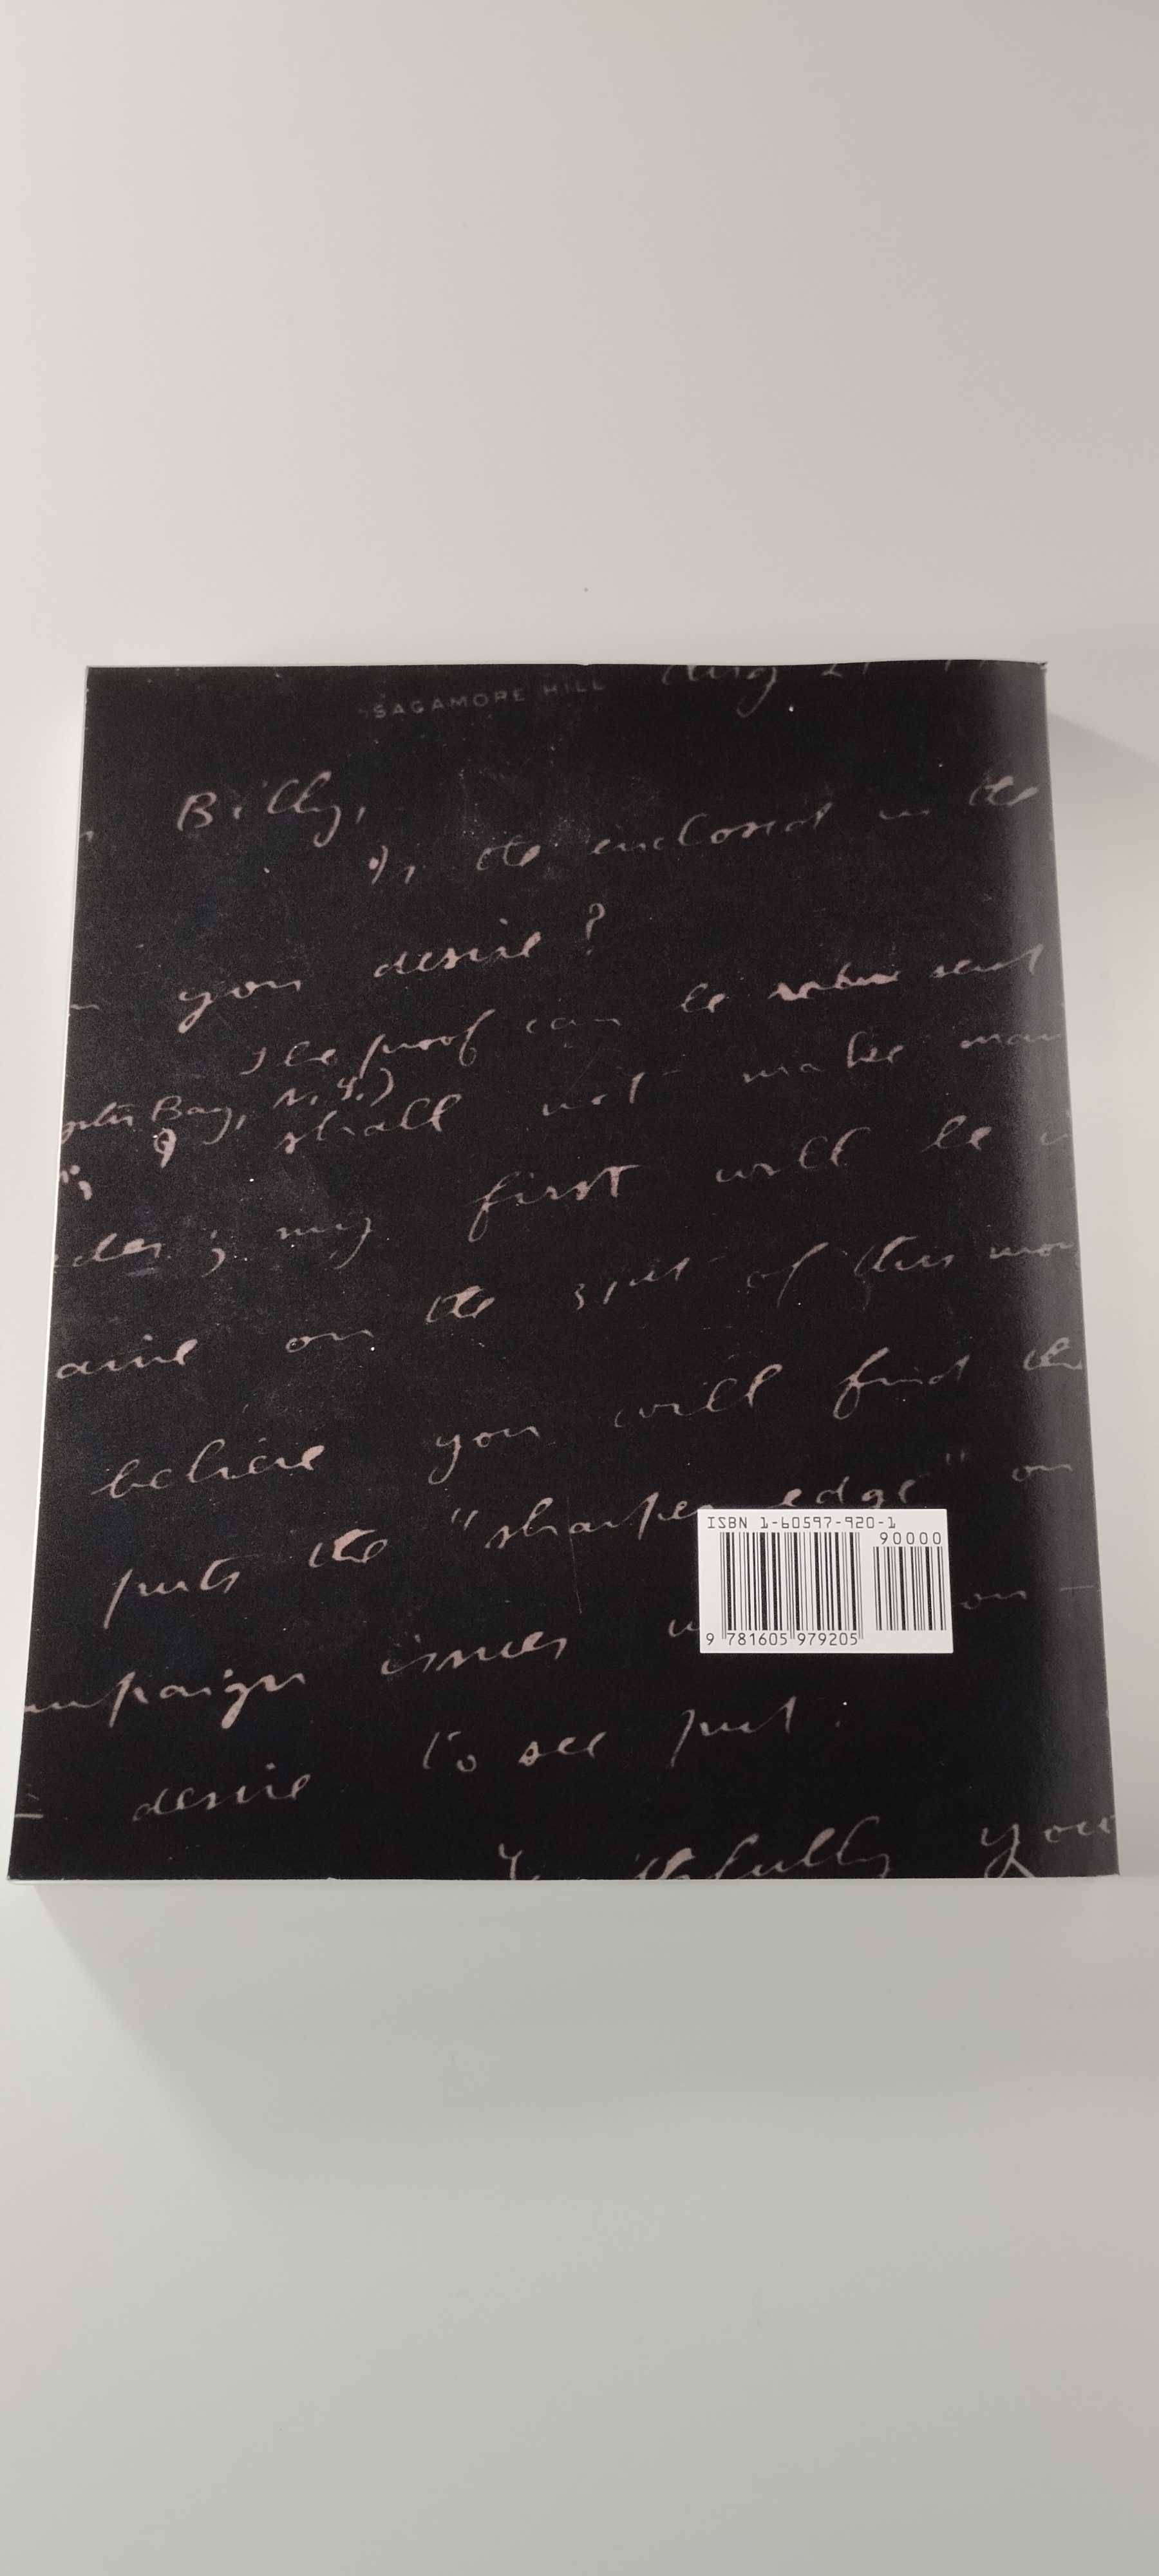 SAGAMORE HILL Aug 21
Billy,
Is the enclosed in the
you desire?
The proof can be sent
Bay, N.Y.)
I shall not make man
; my first will be i
on the of this mon
believe you will find the
puts the "sharper edge" on
mpaign issues on
desire to see put.
Faithfully you
ISBN 1-60597-920-1
90000
9 781605 979205